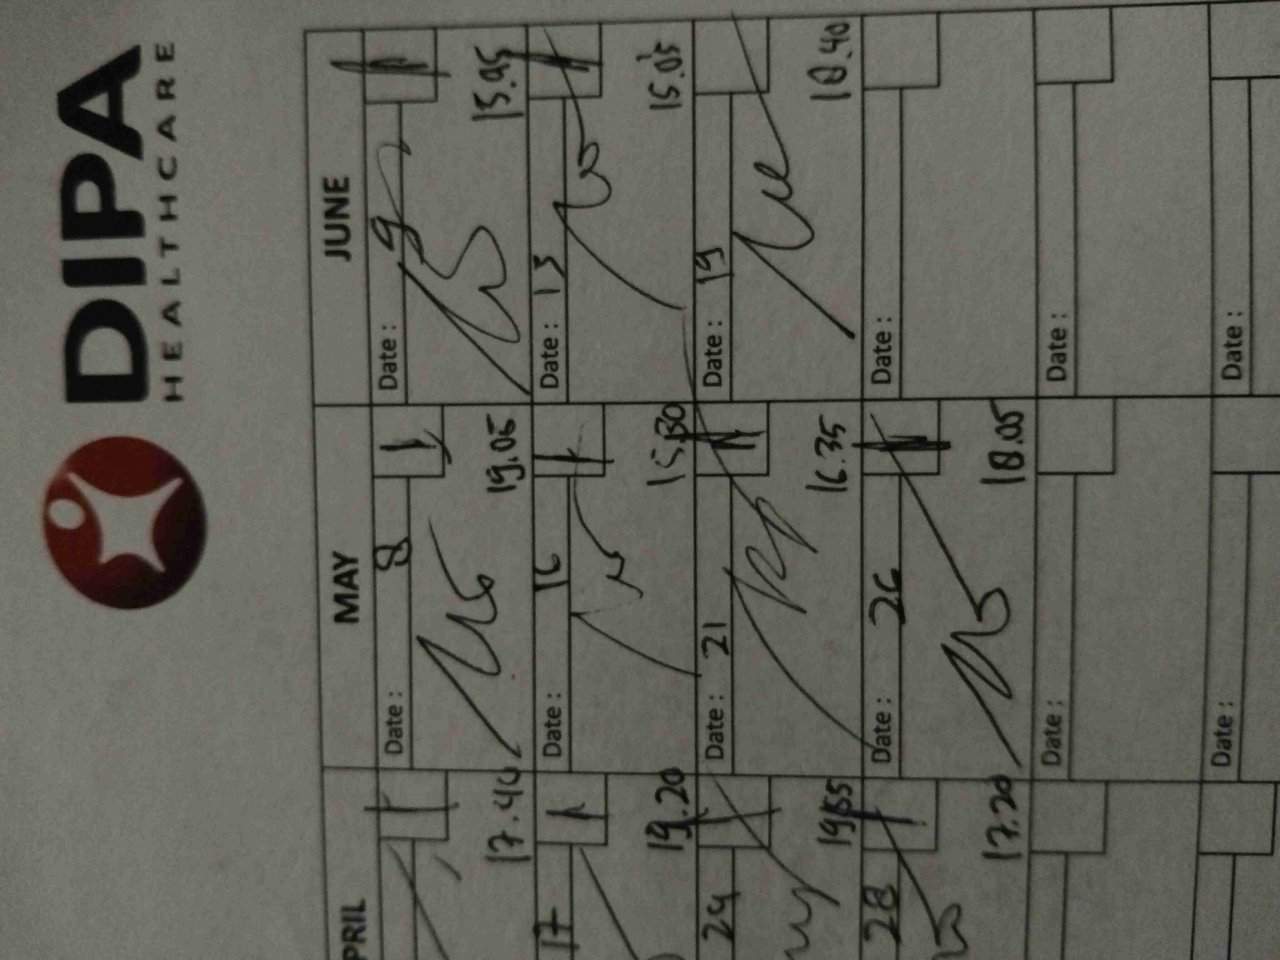 DIPA
HEALTHCARE
PRIL
MAY
JUNE
Date : 8
Date : 9
17.40
19.05
15.45
17
Date : 16
Date : 13
19.20
15.30
15.05
24
Date : 21
Date : 19
19.55
16.35
18.40
28
Date : 26
Date :
17.20
18.05
Date :
Date :
Date :
Date :